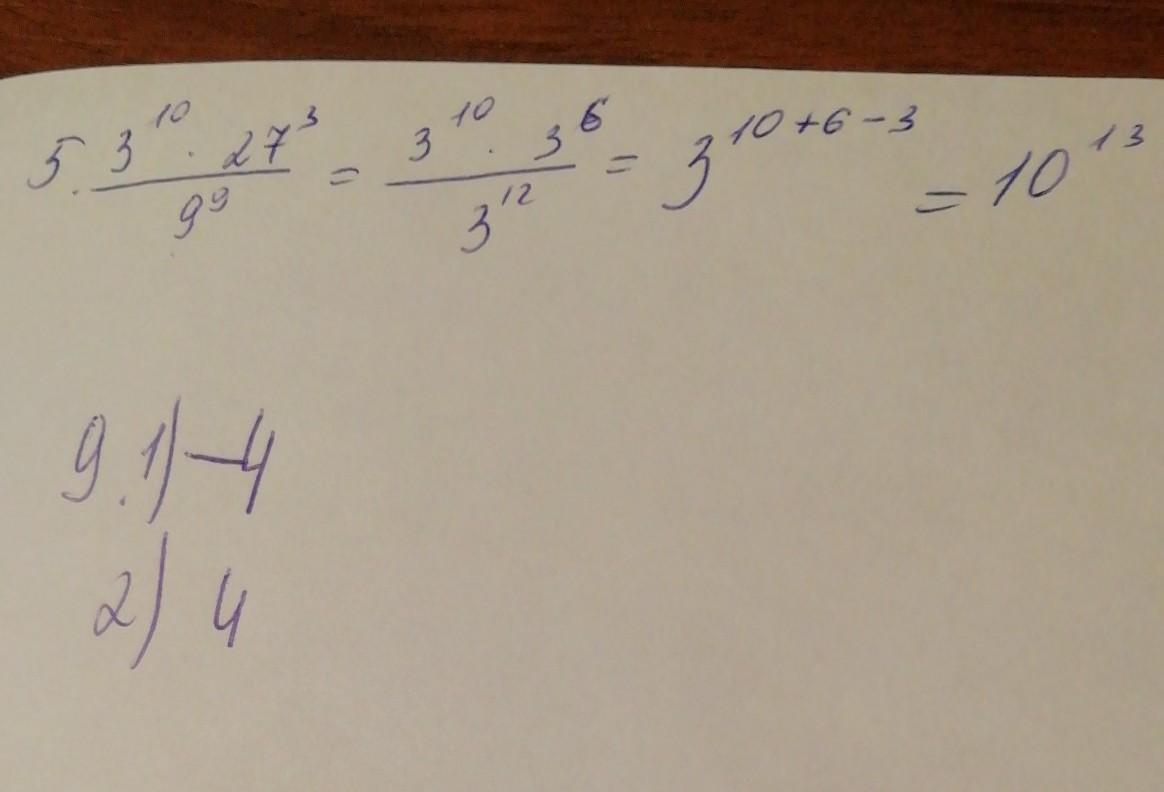 5. \frac{3^{10} \cdot 27^3}{9^9} = \frac{3^{10} \cdot 3^6}{3^{12}} = 3^{10+6-3} = 10^{13}
9. 1) -4
2) 4